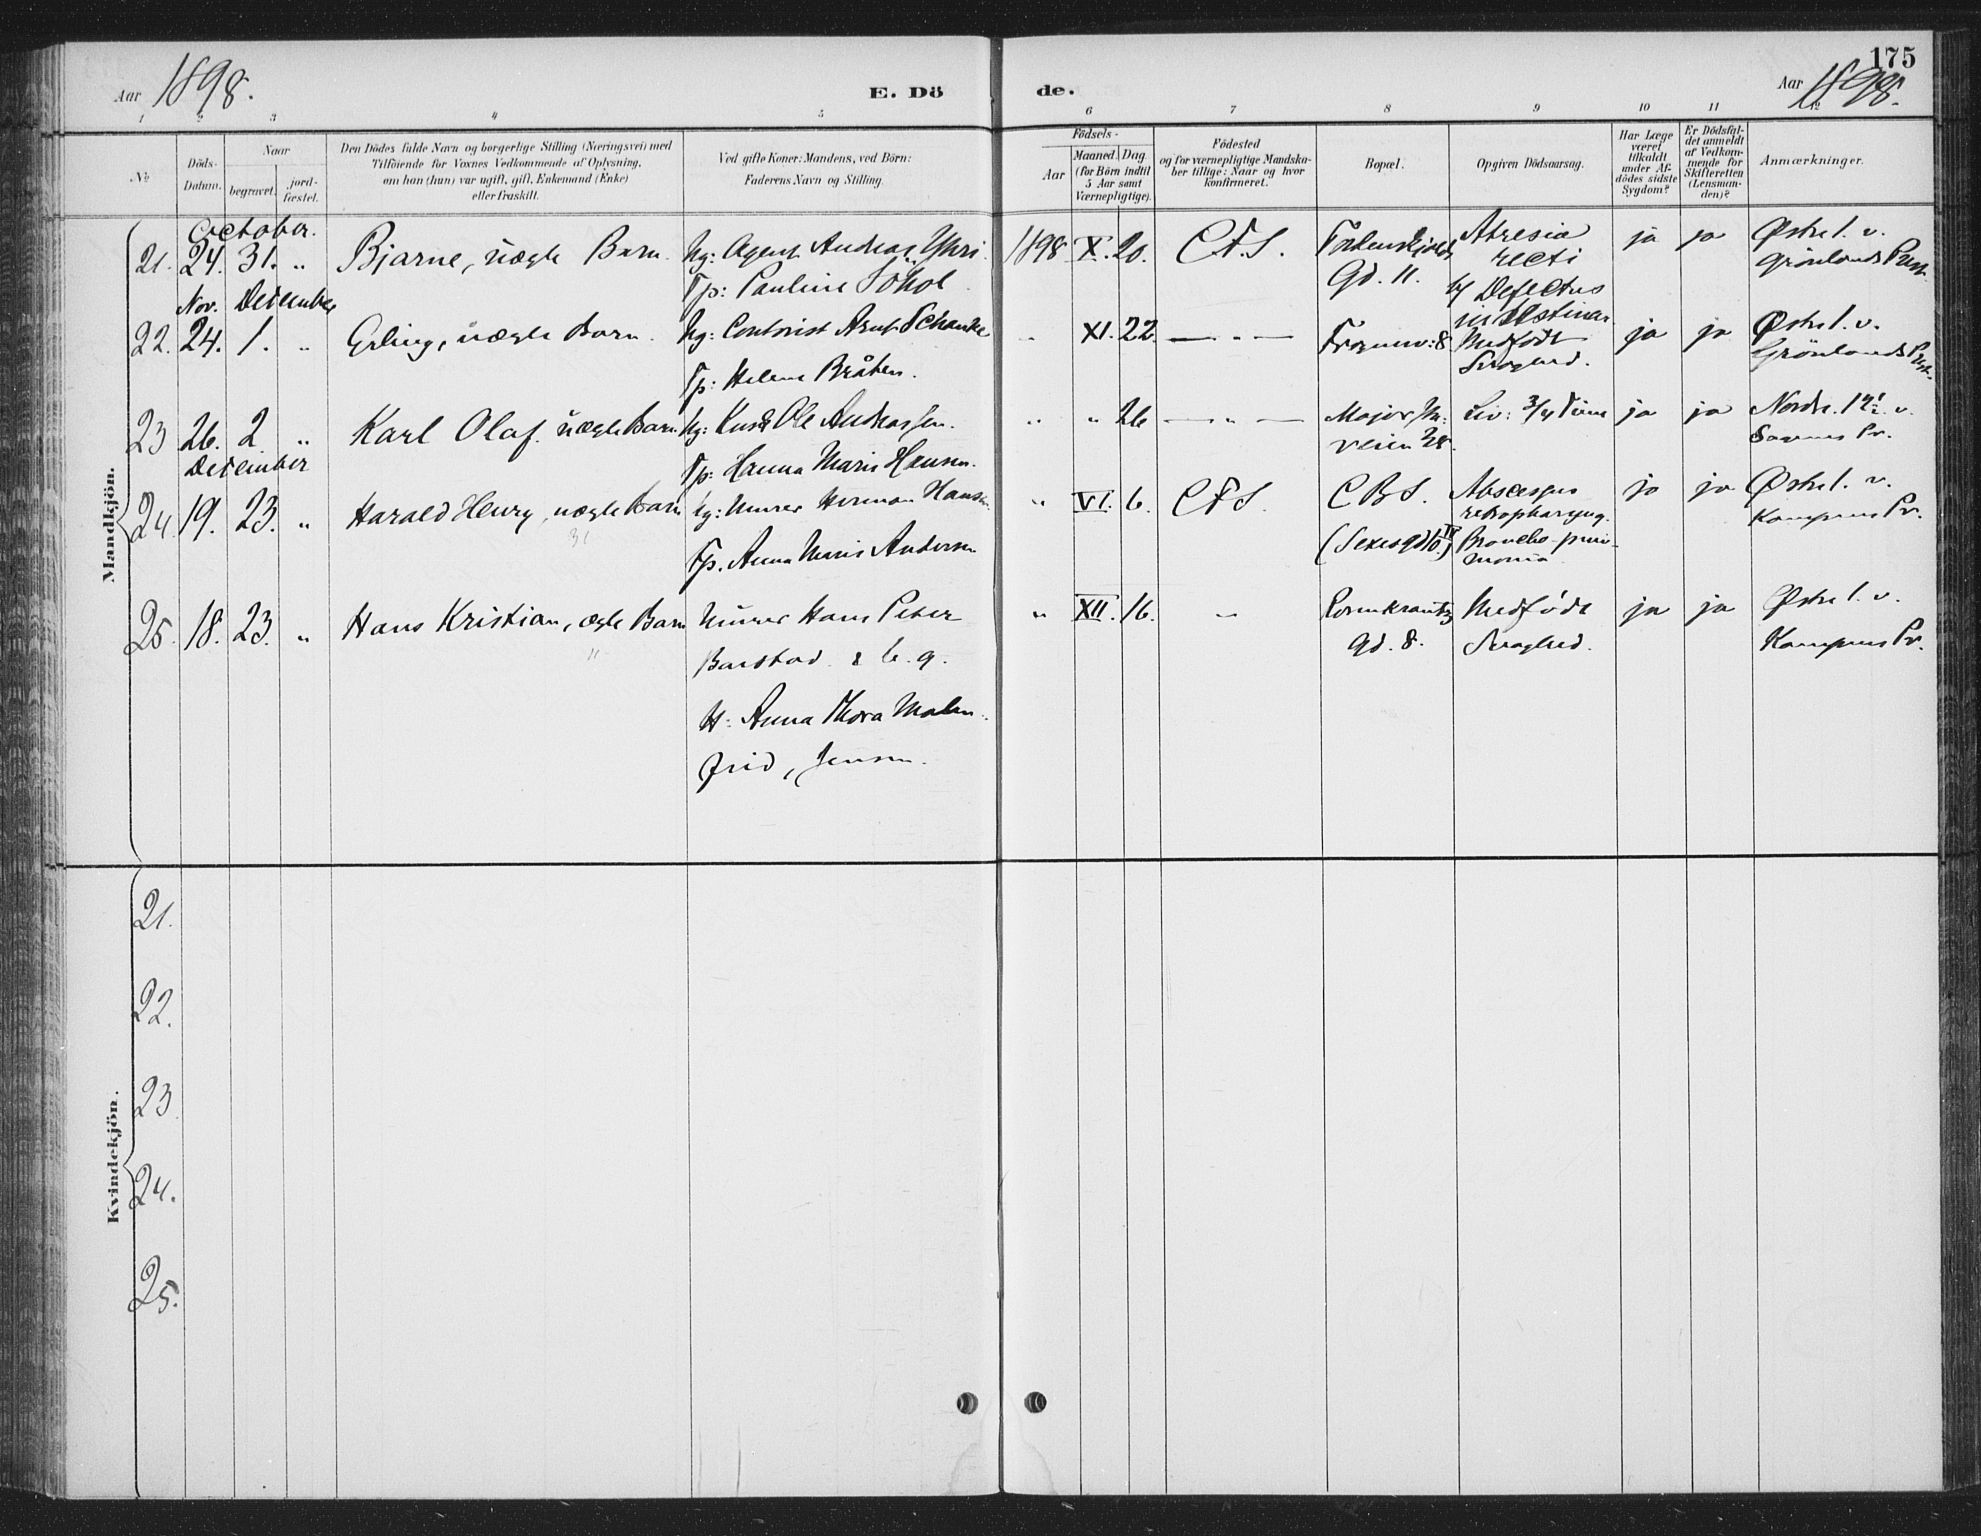 175
Aar 1898.
E. Döde.
Aar 1898.
1 2 3 4 5 6 7 8 9 10 11 12
No
Döds-Datum.
Naar
begravet.
jord-fæstet.
Den Dödes fulde Navn og borgerlige Stilling (Næringsvei) med
Tilföiende for Voxnes Vedkommende af Oplysning,
om han (hun) var ugift, gift, Enkemand (Enke)
eller fraskilt.
Ved gifte Koner: Mandens, ved Börn:
Faderens Navn og Stilling.
Födsels-
Aar
Maaned.
Dag
(for Börn indtil
5 Aar samt
Værnepligtige).
Födested
og for værnepligtige Mandska-
ber tillige: Naar og hvor
konfirmeret.
Bopæl.
Opgiven Dödsaarsag.
Har Læge
været
tilkaldt
under Af-
dödes sidste
Sygdom?
Er Dödsfal-
det anmeldt
af Vedkom-
mende for
Skifteretten
(Lensman-
den)?
Anmærkninger.
Mandkjön.
October.
21. 24. 31. „ Bjarne, uægte Barn. Ug: Agent Andreas
Fp: Pauline
1898 X. 20. C.F.S.
Gd. 11.
Atresia
recti
Defectus
ja ja Østre l. v.
Grönlands Præst.
Nov. December
22. 24. 1. „ Erling, uægte Barn. Ug: Contorist Arnt Schanke
Fp: Helene Bråten.
„ XI. 22 — „ — Frognerv: 8
Medfödt
Svaghed.
ja ja Østre l. v.
Grönlands Præst.
23 26. 2 „ Karl Olaf. uægte Barn Ug: Kusk Ole Andreassen.
Fp: Hanna Marie Hansen.
„ „ 26 — „ — Major
veien 38.
Lev: 3/4 Time ja ja Nordre
Pr.
December
24 19. 23. „ Harald Henry, uægte Barn Ug: Murer Herman Hansen.
Fp. Anna Marie Andersen
„ VI. 6. C F S. C B S.
Abscessus
retropharyng.
Broncho-pneu-
monia
ja ja Østre l. v.
Kampens Pr.
25. 18. 23. „ Hans Kristian, ægte Barn Murer Hans Peter
Barstad & h. g.
H: Anna Thora Malen-
frid, Jensen.
„ XII. 16. „ Rosenkrantz
gd. 8.
Medfödt
Svaghed.
ja ja Østre l. v.
Kampens Pr.
Kvindekjön.
21.
22.
23
24.
25.